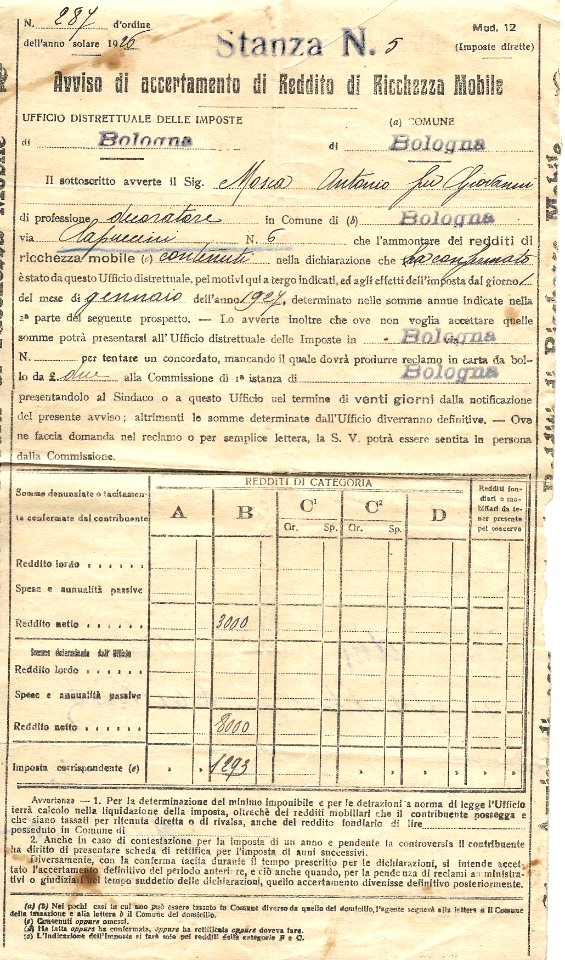 N. 287 d'ordine
dell'anno solare 1926
Stanza N. 5
Mod. 12
(Imposte dirette)
Avviso di accertamento di Reddito di Ricchezza Mobile
UFFICIO DISTRETTUALE DELLE IMPOSTE (a) COMUNE
di Bologna di Bologna
Il sottoscritto avverte il Sig. Mosca Antonio fu Giovanni
di professione decoratore in Comune di (b) Bologna
via Capuccini N. 6 che l'ammontare dei redditi di
ricchezza mobile (c) contenuti nella dichiarazione che (d) ha confermato
è stato da questo Ufficio distrettuale, pei motivi qui a tergo indicati, ed agli effetti dell'imposta dal giorno 1
del mese di gennaio dell'anno 1927, determinato nelle somme annue indicate nella
2ª parte del seguente prospetto. — Lo avverte inoltre che ove non voglia accettare quelle
somme potrà presentarsi all'Ufficio distrettuale delle Imposte in Bologna
N. per tentare un concordato, mancando il quale dovrà produrre reclamo in carta da bol-
lo da £. due alla Commissione di 1ª istanza di Bologna
presentandolo al Sindaco o a questo Ufficio nel termine di venti giorni dalla notificazione
del presente avviso; altrimenti le somme determinate dall'Ufficio diverranno definitive. — Ove
ne faccia domanda nel reclamo o per semplice lettera, la S. V. potrà essere sentita in persona
dalla Commissione.
REDDITI DI CATEGORIA
Somme denunziate o tacitamen-
te confermate dal contribuente
A B C¹ C² D
Gr. Sp. Gr. Sp.
Redditi fon-
diari o mo-
biliari da te-
ner presente
pel
Reddito lordo
Spese e annualità passive
Reddito netto 3000
Somme determinate dall'Ufficio
Reddito lordo
Spese e annualità passive
Reddito netto 8000
Imposta corrispondente (e) 1293
Avvertenze — 1. Per la determinazione del minimo imponibile e per le detrazioni a norma di legge l'Ufficio
terrà calcolo nella liquidazione della imposta, oltrechè dei redditi mobiliari che il contribuente possegga e
che siano tassati per ritenuta diretta o di rivalsa, anche del reddito fondiario di lire
posseduto in Comune di
2. Anche in caso di contestazione per la imposta di un anno e pendente la controversia il contribuente
ha diritto di presentare scheda di rettifica per l'imposta di anni successivi.
Diversamente, con la conferma tacita durante il tempo prescritto per le dichiarazioni, si intende accet-
tato l'accertamento definitivo del periodo anteriore, e ciò anche quando, per la pendenza di reclami amministra-
tivi o giudiziari nel tempo suddetto delle dichiarazioni, quello accertamento divenisse definitivo posteriormente.
(a) (b) Nei pochi casi in cui uno può essere tassato in Comune diverso da quello del domicilio, l'agente segnerà alla lettera a il Comune
della tassazione e alla lettera b il Comune del domicilio.
(c) Contenuti oppure omessi.
(d) Ha fatta oppure ha confermata, oppure ha rettificata oppure doveva fare.
(e) L'indicazione dell'imposta si farà solo pei redditi delle categorie B e C.